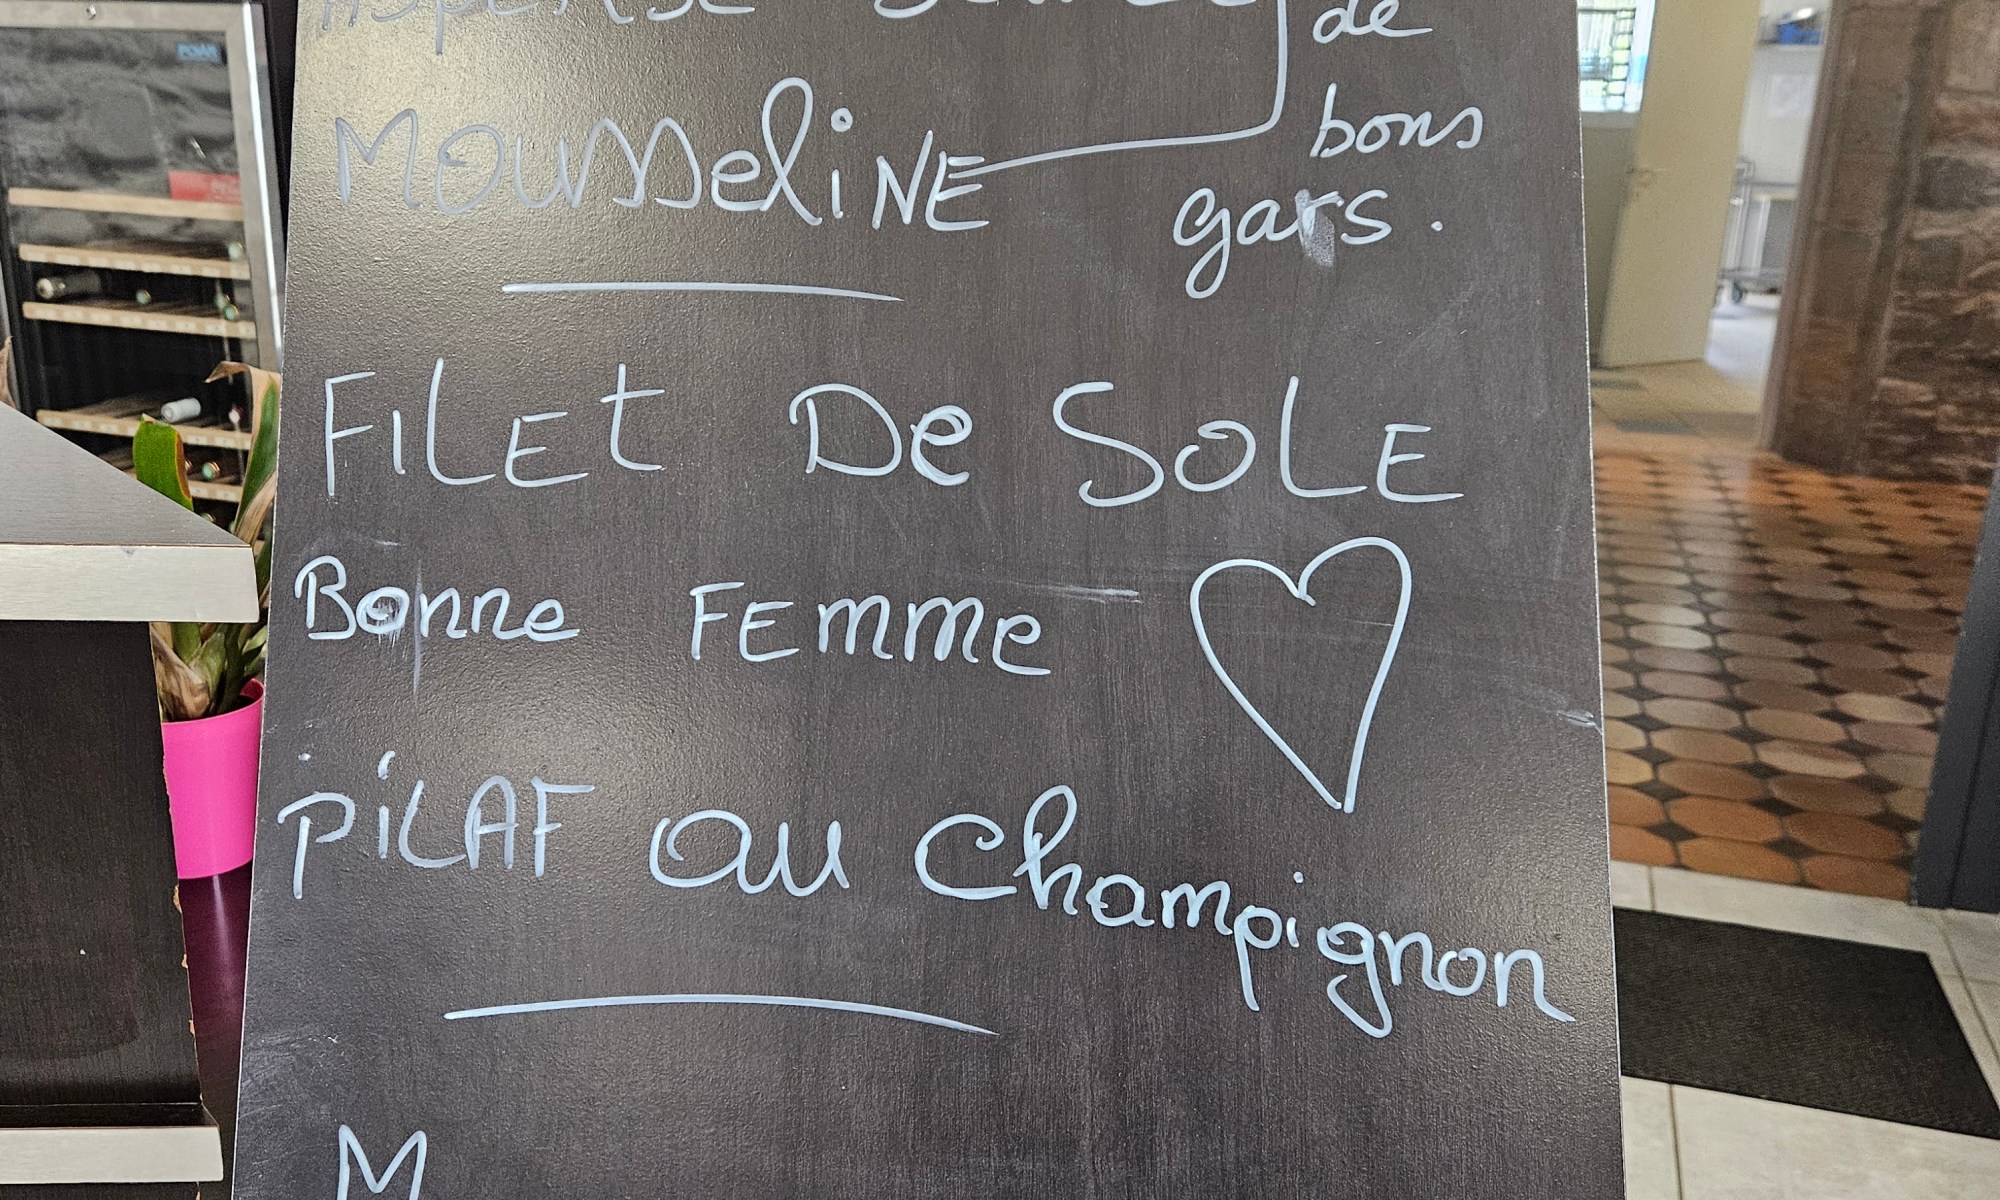 de
MOUSSeliNE
bons
gars.
FILEt De SOLE
Bonne FEmme
PiLAF au Champignon
M